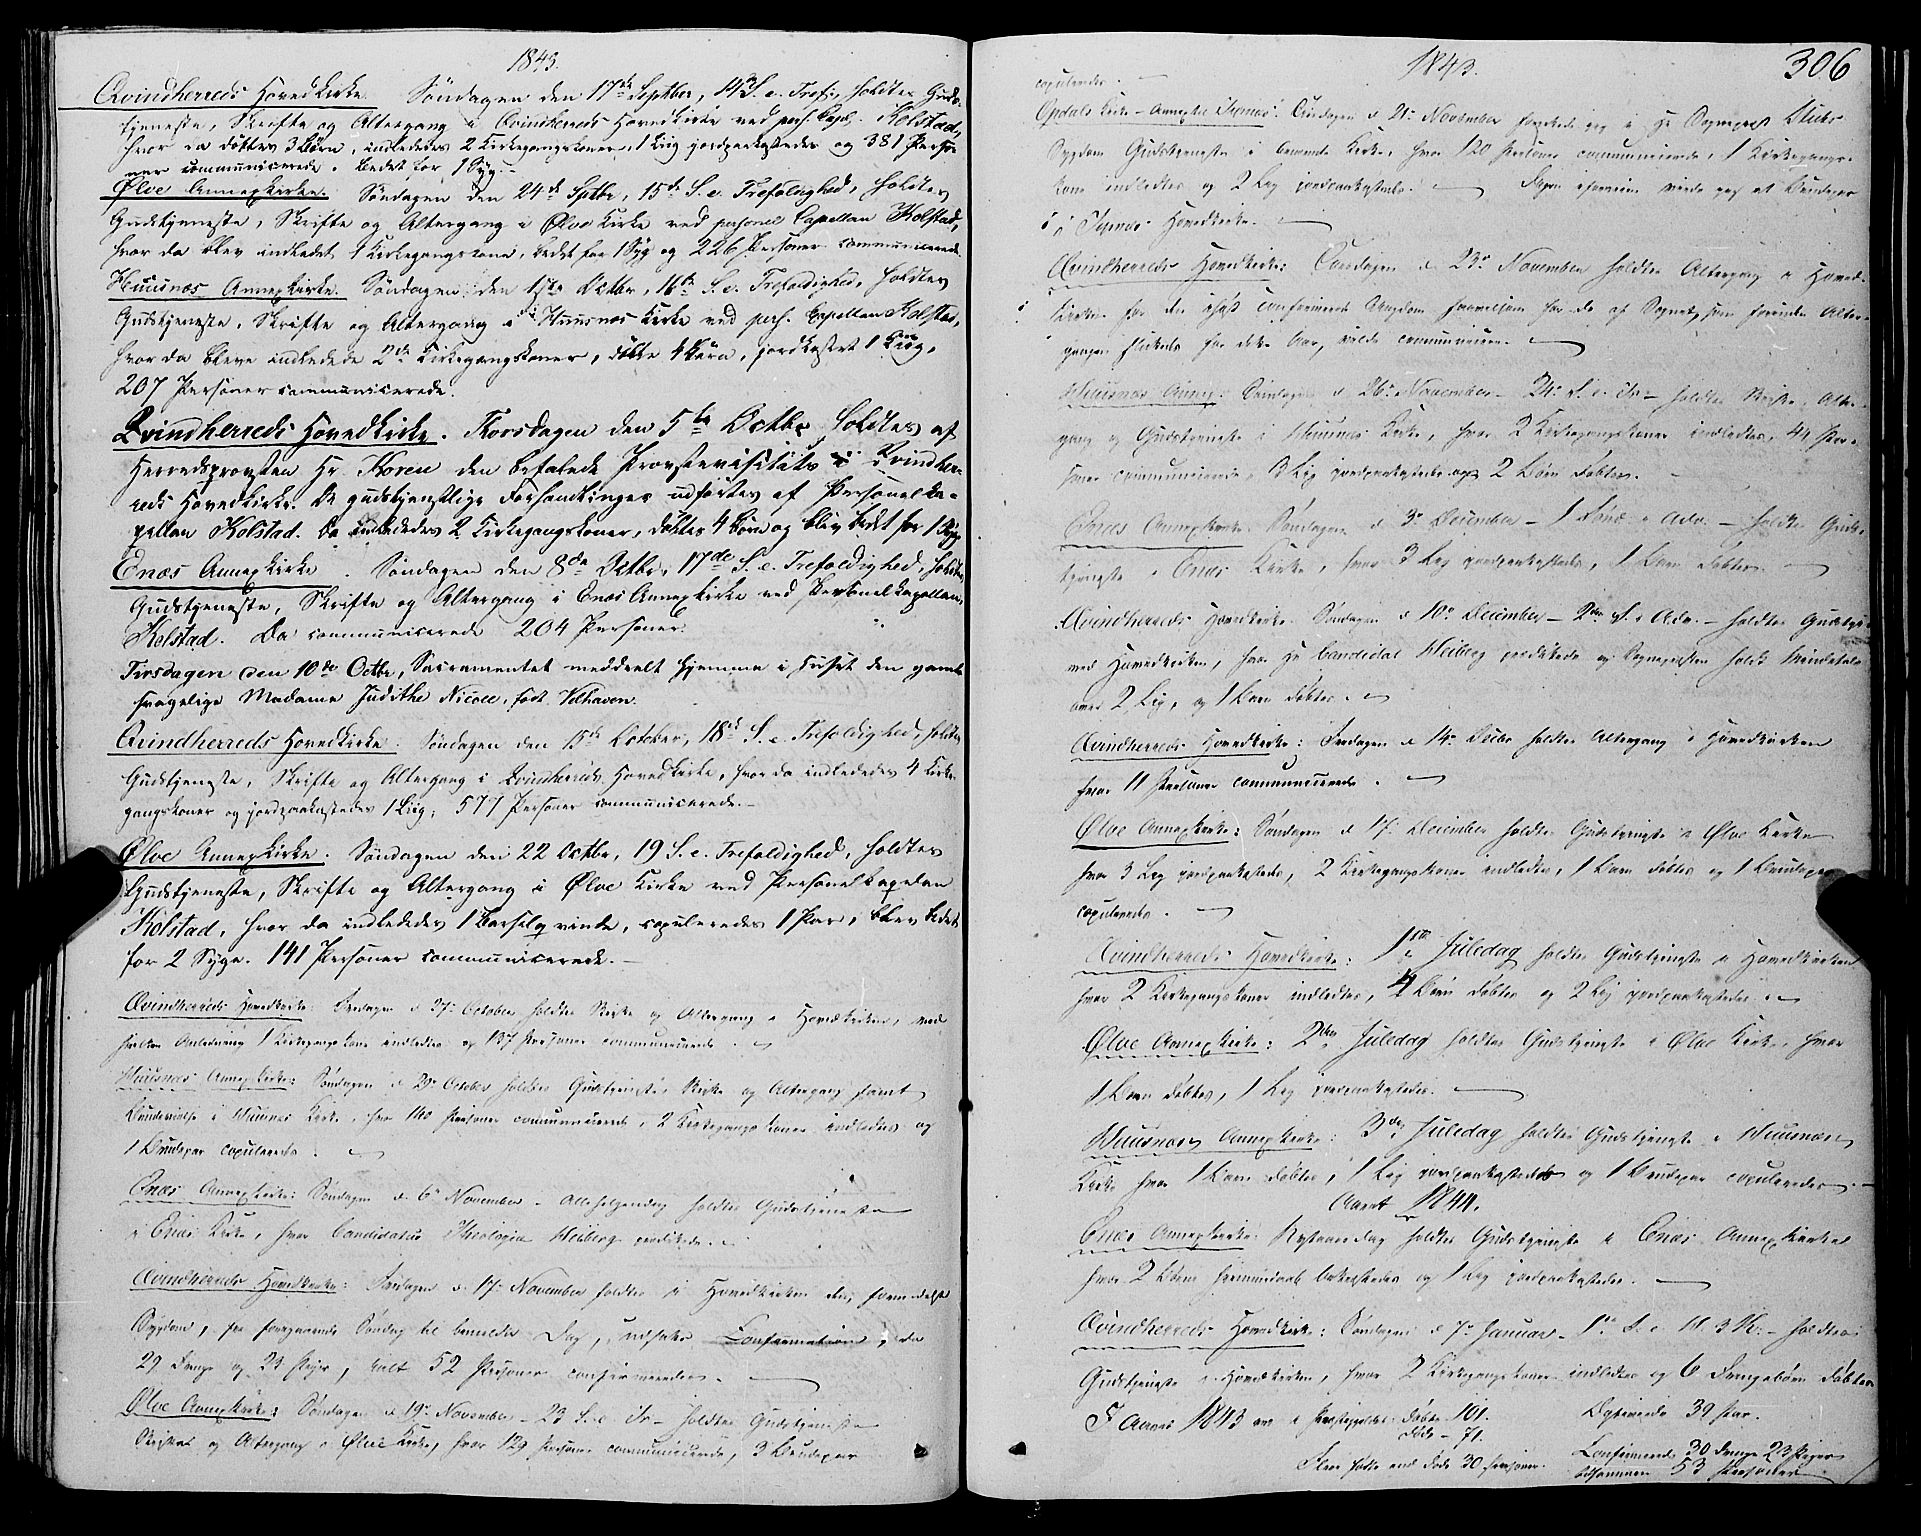 1843.
Qvindherreds Hovedkirke. Søndagen den 17de Septbr, 14 S. e. Tref: holdtes Guds-
tjeneste, Skrifte og Altergang i Qvindherreds Hovedkirke ved pers. Cap. Kolstad,
hvor da døbtes 3 Børn, indledes 2 Kirkegangskoner, 1 Liig jordpaakastedes og 381 Perso-
ner communicerede. bedet for 1 Syg.
Ølve Annexkirke. Søndagen den 24de Septbr, 15de S. e. Trefoldighed, holdtes
Gudstjeneste, Skrifte og Altergang i Ølve Kirke ved personel Capellan Kolstad,
hvor da blev indledet 1 Kirkegangskone, bedet for 1 Syg og 226 Personer communicerede
Huusnæs Annexkirke. Søndagen den 1ste Octbr, 16de S. e. Trefoldighed, holdtes
Gudstjeneste, Skrifte og Altergang i Huusnæs Kirke ved pers. Capellan Kolstad,
hvor da bleve indledede 2de Kirkegangskoner, døbte 4 Børn, jordkastet 1 Liig,
207 Personer communicerede.
Qvindherreds Hovedkirke. Torsdagen den 5te Octbr holdtes af
Herredsprovsten Hr. Koren den befalede Provstevisitats i Qvindher-
reds Hovedkirke. De gudstjenstlige Forhandlinger udførtes af Personelka-
pellan Kolstad. Da indlededes 2 Kirkegangskoner, døbtes 4 Børn og blev bedet for 1 Syg.
Enæs Annexkirke. Søndagen den 8de Octbr, 17de S. e. Trefoldighed, holdtes
Gudstjeneste, Skrifte og Altergang i Enæs Annexkirke ved Personelkapellan
Kolstad. Da communicerede 204 Personer.
Tirsdagen den 10de Octbr, Sacramentet meddeelt hjemme i Huset den gamle
svagelige Madame Judithe Nicoll, født Velhaven.
Qvindherreds Hovedkirke. Søndagen den 15de October, 18de S. e. Trefoldighed, holdtes
Gudstjeneste, Skrifte og Altergang i Qvindherreds Hovedkirke, hvor da indlededes 4 Kirke-
gangskoner og jordpaakastedes 1 Liig, 577 Personer communicerede.
Ølve Annexkirke. Søndagen den 22 Octbr, 19 S. e. Trefoldighed, holdtes
Gudstjeneste, Skrifte og Altergang i Ølve Kirke ved Personelkapelan
Kolstad, hvor da indlededes 1 Barselqvinde, copuleredes 1 Par, blev bedet
for 2 Syge. 141 Personer communicerede.
Qvindherreds Hovedkirke: Fredagen d 27de October holdtes Skrifte og Altergang i Hovedkirken, ved
hvilken Anledning 1 Kirkegangskone indledtes og 137 Personer communicerede.
Huusnæs Annexkirke: Søndagen d 29de October holdtes Gudstjeneste, Skrifte og Altergang samt
i Huusnæs Kirke, hvor 140 Personer communicerede, 2 Kirkegangskoner indledtes og
1 Brudepar copuleredes.
Enæs Annexkirke: Søndagen d 6te November - Allehelgensdag holdtes Gudstjeneste
i Enæs Kirke, hvor Candidatus Theologiæ Heiberg prædikede.
Qvindherreds Hovedkirke: Fredagen d. 17de November holdtes i Hovedkirken den, formedelst
Sygdom, fra foregaaende Søndag til bemeldte Dag, udsatte Confirmation, da
29 Drenge og 23 Piger, ialt 52 Personer confirmeredes.
Ølve Annexkirke: Søndagen d 19de November - 23 S. e. Tr. - holdtes Gudstjeneste
Skrifte og Altergang i Ølve Kirke, hvor 129 Personer communicerede, 3 Brudepar
1843.
306
copuleredes.
Opdals Kirke - Annex til Tysnæs. Tirsdagen d 21de November forrettede jeg i Hr Sognepræst Stubs
Sygdom Gudstjeneste i benævnte Kirke, hvor 120 Personer communicerede, 1 Kirkegangs-
kone indledtes og 2 Lig jordpaakastedes. Dagen viede jeg et Brudepar
i Tysnæs Hovedkirke.
Qvindherreds Hovedkirke: Torsdagen d 23de November holdtes Altergang i Hoved-
Kirken for den confirmerede Ungdom for de af Sognet, som forinden Alter-
gangen sluttedes for dette Aar, vilde communicere.
Huusnæs Annex: Søndagen d 26de November - 24de S. e. Tr - holdtes Skrifte, Alter-
gang og Gudstjeneste i Huusnæs Kirke, hvor 2 Kirkegangskoner indledtes, 44 Per-
soner communicerede, 3 Lig jordpaakastedes og 2 Børn døbtes.
Enæs Annexkirke: Søndagen d 3de December - 1 Sønd. i Adv. - holdtes Guds-
tjeneste i Enæs Kirke, hvor 3 Lig jordpaakastedes, 1 Barn døbtes.
Qvindherreds Hovedkirke. Søndagen d 10de December - 2den S. i Adv. - holdtes Gudstjeneste
ved Hovedkirken, hvor Hr Candidat Heiberg prædikede og Sognepræsten holdt Mindetale
over 2 Lig, og 1 Barn døbtes.
Qvindherreds Hovedkirke: Torsdagen d 14de Decbr holdtes Altergang i Hovedkirken
hvor 11 Personer communicerede.
Ølve Annexkirke: Søndagen d 17de December holdtes Gudstjeneste i Ølve Kirke
hvor 3 Lig jordpaakastedes, 2 Kirkegangskoner indledtes, 1 Barn døbtes og 1 Brudepar
copuleredes.
Qvindherreds Hovedkirke: 1ste Juledag holdtes Gudstjeneste i Hovedkirken
hvor 2 Kirkegangskoner indledtes, 4 Børn døbtes og 2 Lig jordpaakastedes.
Ølve Annexkirke: 2den Juledag holdtes Gudstjeneste i Ølve Kirke, hvor
1 Barn døbtes, 1 Lig jordpaakastedes.
Huusnæs Annexkirke: 3die Juledag holdtes Gudstjeneste i Huusnæs
Kirke hvor 1 Barn døbtes, 1 Lig jordpaakastedes og 1 Brudepar copuleredes.
Aaret 1844.
Enæs Annexkirke: Nytaarsdag holdtes Gudstjeneste i Enæs Annexkirke
hvor 2 Børns Hjemmedaab bekræftedes og 1 Lig jordpaakastedes.
Qvindherreds Hovedkirke: Søndagen d 7de Januar - 1ste S. e. H. 3 K. - holdtes
Gudstjeneste i Hovedkirken, hvor 2 Kirkegangskoner indledtes og 6 Drengebørn døbtes
I Aaret 1843 ere i Præstegjeldet: Døbte 101. Copulerede 39 Par.
Døde - 71.
Flere fødte end døde 30 Personer. Confirmerede 30 Drenge 23 Piger
tilsammen 53 Personer